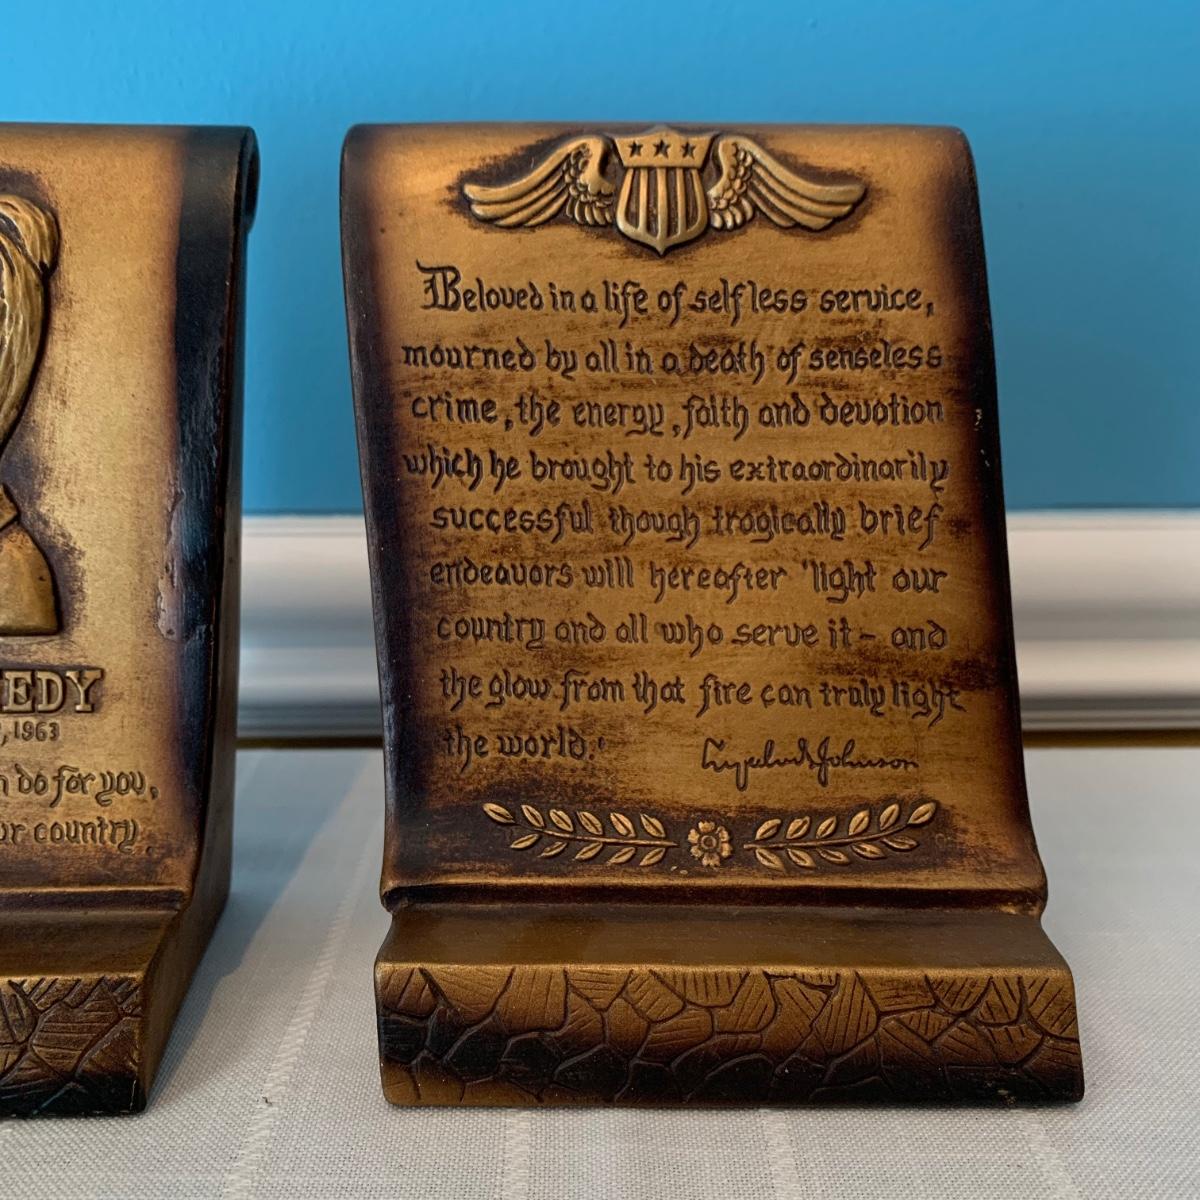 EDY
, 1963
n do for you,
ur country.
Beloved in a life of selfless service,
mourned by all in a death of senseless
crime, the energy, faith and devotion
which he brought to his extraordinarily
successful though tragically brief
endeavors will hereafter 'light our
country and all who serve it - and
the glow from that fire can truly light
the world.'
Lyndon B Johnson